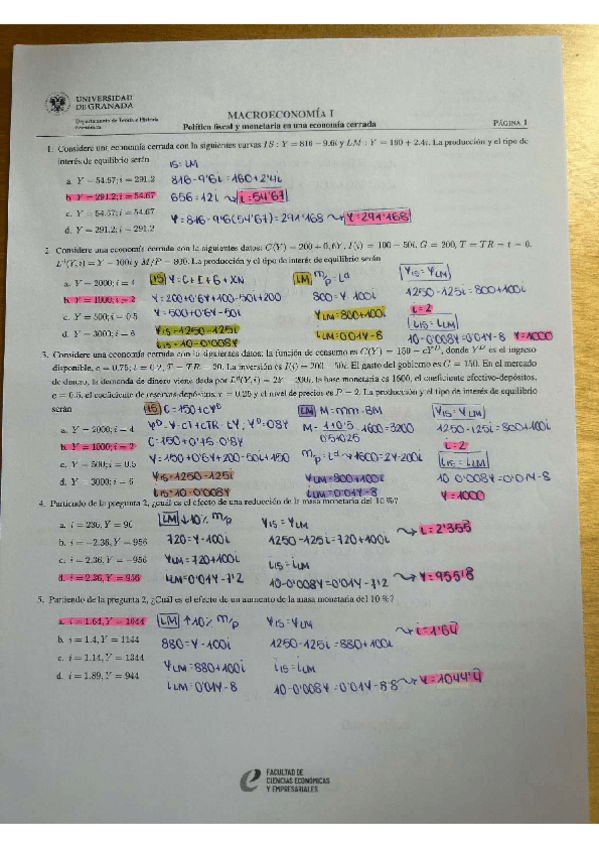 UNIVERSIDAD
DE GRANADA
Departamento de Teoría e Historia
Económica
MACROECONOMÍA I
Política fiscal y monetaria en una economía cerrada
PÁGINA 1
1. Considere una economía cerrada con la siguientes curvas IS : Y = 816 − 9.6i y LM : Y = 160 + 2.4i. La producción y el tipo de
interés de equilibrio serán
IS=LM
a. Y = 54.67; i = 291.2
816-9'6i=160+2'4i
b. Y = 291.2; i = 54.67
656=12i → i=54'67
c. Y = 54.67; i = 54.67
Y=816-9'6(54'67)=291'168 → Y=291'168
d. Y = 291.2; i = 291.2
2. Considere una economía cerrada con la siguientes datos: C(Y) = 200 + 0,6Y, I(i) = 100 − 50i, G = 200, T = TR = t = 0,
L^d(Y, i) = Y − 100i y M/P = 800. La producción y el tipo de interés de equilibrio serán
a. Y = 2000; i = 4
IS Y=C+I+G+XN
LM M/P=Ld
YIS=YLM
b. Y = 1000; i = 2
Y=200+0'6Y+100-50i+200
800=Y-100i
1250-125i=800+100i
c. Y = 500; i = 0.5
Y=500+0'6Y-50i
YLM=800+100i
i=2
d. Y = 3000; i = 6
YIS=1250-125i
iLM=0'01Y-8
iIS=iLM
iIS=10-0'008Y
10-0'008Y=0'01Y-8 Y=1000
3. Considere una economía cerrada con la siguientes datos: la función de consumo es C(Y) = 150 + cY^D, donde Y^D es el ingreso
disponible, c = 0.75; t = 0,2, T = TR = 20. La inversión es I(i) = 200 − 50i. El gasto del gobierno es G = 150. En el mercado
de dinero, la demanda de dinero viene dada por L^d(Y, i) = 2Y − 200i, la base monetaria es 1600, el coeficiente efectivo-depósitos,
e = 0.5, el coeficiente de reservas-depósitos, r = 0.25 y el nivel de precios es P = 2. La producción y el tipo de interés de equilibrio
serán
IS C=150+cYD
LM M=mm·BM
YIS=YLM
a. Y = 2000; i = 4
YD=Y-T+TR-tY, YD=0'8Y
M=1+0'5/0'5+0'25·1600=3200
1250-125i=800+100i
b. Y = 1000; i = 2
C=150+0'75·0'8Y
i=2
c. Y = 500; i = 0.5
Y=150+0'6Y+200-50i+150
M/P=Ld→1600=2Y-200i
iIS=iLM
d. Y = 3000; i = 6
YIS=1250-125i
YLM=800+100i
10-0'008Y=0'01Y-8
iIS=10-0'008Y
iLM=0'01Y-8
Y=1000
4. Partiendo de la pregunta 2, ¿cuál es el efecto de una reducción de la masa monetaria del 10 %?
a. i = 236, Y = 96
LM ↓10% M/P
YIS=YLM
→ i=2'355
b. i = −2.36, Y = 956
720=Y-100i
1250-125i=720+100i
c. i = 2.36, Y = −956
YLM=720+100i
iIS=iLM
d. i = 2.36, Y = 956
iLM=0'01Y-7'2
10-0'008Y=0'01Y-7'2 → Y=955'8
5. Partiendo de la pregunta 2, ¿Cuál es el efecto de un aumento de la masa monetaria del 10 %?
a. i = 1.64, Y = 1044
LM ↑10% M/P
YIS=YLM
→ i=1'64
b. i = 1.4, Y = 1144
880=Y-100i
1250-125i=880+100i
c. i = 1.14, Y = 1344
YLM=880+100i
iIS=iLM
d. i = 1.89, Y = 944
iLM=0'01Y-8
10-0'008Y=0'01Y-8'8 → Y=1044'4
FACULTAD DE
CIENCIAS ECONÓMICAS
Y EMPRESARIALES